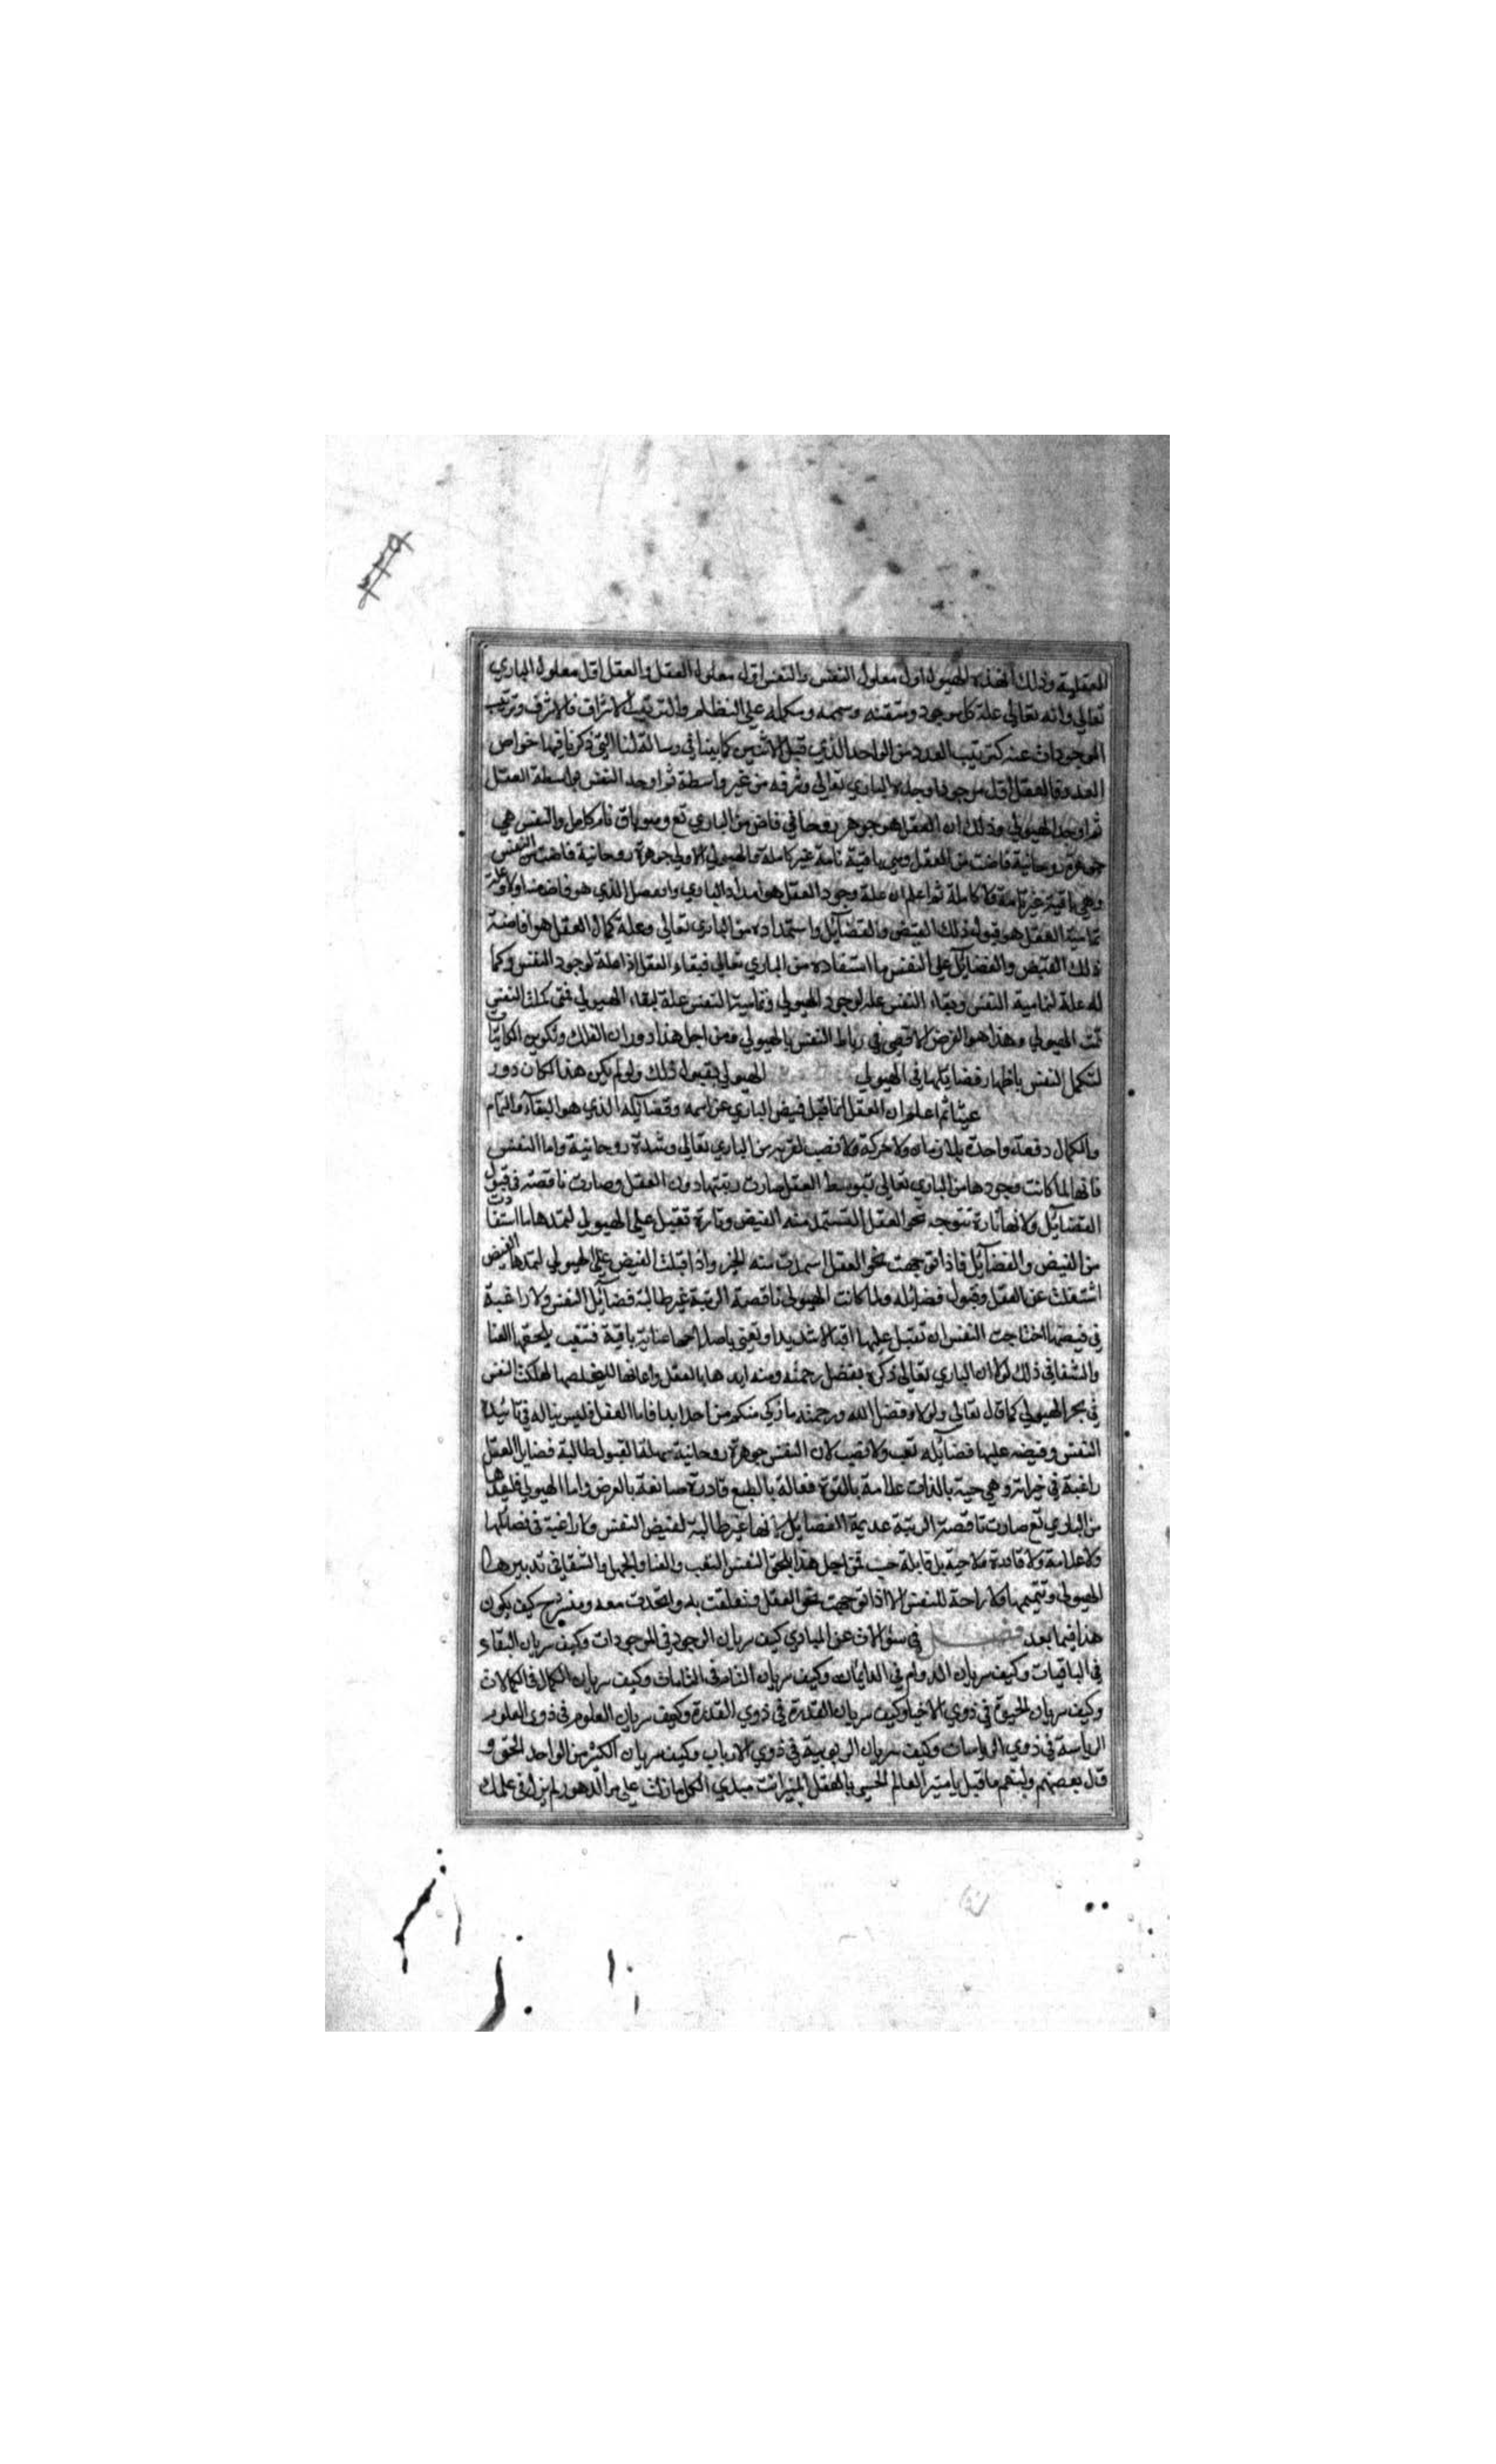 العقلية وذلك ان هذه الهيولى اول معلول النفس والنفس اول معلول العقل والعقل اول معلول الباري
تعالى وانه تعالى علة كل موجود ومتقنه ومتممه ومكمله على النظام والترتيب الاشراف فالاشرف وترتيب
الموجودات عنه كترتيب العدد من الواحد الذي قبل الاثنين كما بينا في رسالة لنا التي ذكرنا فيها خواص
العدد فالعقل اول موجود اوجده الباري تعالى وشرفه من غير واسطة ثم اوجد النفس بواسطة العقل
ثم اوجد الهيولي وذلك ان العقل هو جوهر روحاني فاض من الباري تع وهو باق تام كامل والنفس هي
جوهرة روحانية فاضت من العقل وهي باقية تامة غير كاملة والهيولي الاولي جوهرة روحانية فاضت من النفس
وهي باقية غير تامة ولا كاملة ثم اعلم ان علة وجود العقل هو امداد الباري وافضل الذي هو فاض منه اولا وعلة
تمامية العقل هو قبول ذلك الفيض والفضائل واستمداده من الباري تعالى وعلة كمال العقل هو افاضة
ذلك الفيض والفضائل على النفس بما استفاده من الباري تعالى فبقاء العقل اذا علة لوجود النفس وكما
له علة لتمامية النفس وبقاء النفس علة لوجود الهيولي وتمامية النفس علة لبقاء الهيولي فمتى كملت النفس
تمت الهيولي وهذا هو الغرض الاقصى في رباط النفس بالهيولي ومن اجل هذا دوران الفلك وتكوين الكاينات
لتكمل النفس باظهار فضايلها في الهيولي الهيولي بقبول ذلك ولو لم يكن هذا لكان دور
عبثا ثم اعلم ان العقل انما قبل فيض الباري عز اسمه وفضائله الذي هو البقاء والتمام
والكمال دفعة واحدة بلا زمان ولا حركة ولا نصب لقربه من الباري تعالى وشدة روحانية واما النفس
فانها لما كانت وجودها من الباري تعالى بتوسط العقل صارت رتبتها دون العقل وصارت ناقصة في قبول
الفضائل ولانها تارة تتوجه نحو العقل لتستمد منه الفيض وتارة تقبل على الهيولي لتمدها ما استفادت
من الفيض والفضائل فاذا توجهت نحو العقل استمدت منه الخير واذا قبلت الفيض على الهيولي لتمدها الفيض
اشتغلت عن العقل وقبول فضائله ولما كانت الهيولي ناقصة الرتبة غير طالبة فضائل النفس ولا راغبة
في فيضها احتاجت النفس ان تقبل عليها اقبالا شديدا وتعنى باصلاحها عناية باقية فتتعب يلحقها العنا
والشقا في ذلك لولا ان الباري تعالى ذكره بفضل رحمته ومنه ايدها بالعقل واعانها لتخلصها لهلكت النفس
في بحر الهيولي كما قال تعالى ولولا فضل الله ورحمته ما زكى منكم من احد ابدا فاما العقل فليس يناله في تائيد
النفس وفيضه عليها فضائله تعب ولا نصب لان النفس جوهرة روحانية سهلة القبول طالبة فضايل العقل
راغبة في خيراته وهي حية بالذات علامة بالقوة فعالة بالطبع قادرة صانعة بالعرض واما الهيولي فلبعدها
من الباري تع صارت ناقصة الرتبة عديمة الفضايل لانها غير طالبة لفيض النفس ولا راغبة في فضائلها
ولا علامة ولا قادرة ولا حية بل قابلة حسب فمن اجل هذا يلحق النفس التعب والعنا والجهل والشقا في تدبيرها
الهيولي وتتميمها ولا راحة للنفس الا اذا توجهت نحو العقل وتعلقت به واتحدت معه وسنشرح كيف يكون
هذا فيما بعد فصل في سؤالات عن المبادي كيف سريان الوجود في الموجودات وكيف سريان البقاء
في الباقيات وكيف سريان الدوام في الدايمات وكيف سريان التمام في التامات وكيف سريان الكمال في الكمالات
وكيف سريان الحيوة في ذوي الاحيا وكيف سريان القدرة في ذوي القدرة وكيف سريان العلوم في ذوي العلوم
الرياسة في ذوي الرياسات وكيف سريان الربوبية في ذوي الارباب وكيف سريان الكثر من الواحد الحق و
قال بعضهم ولنعم ما قيل يا مثير العالم الحسي بالعقل المنير انت مبدي الكل ما زلت على مر الدهور لم يزل في علمك